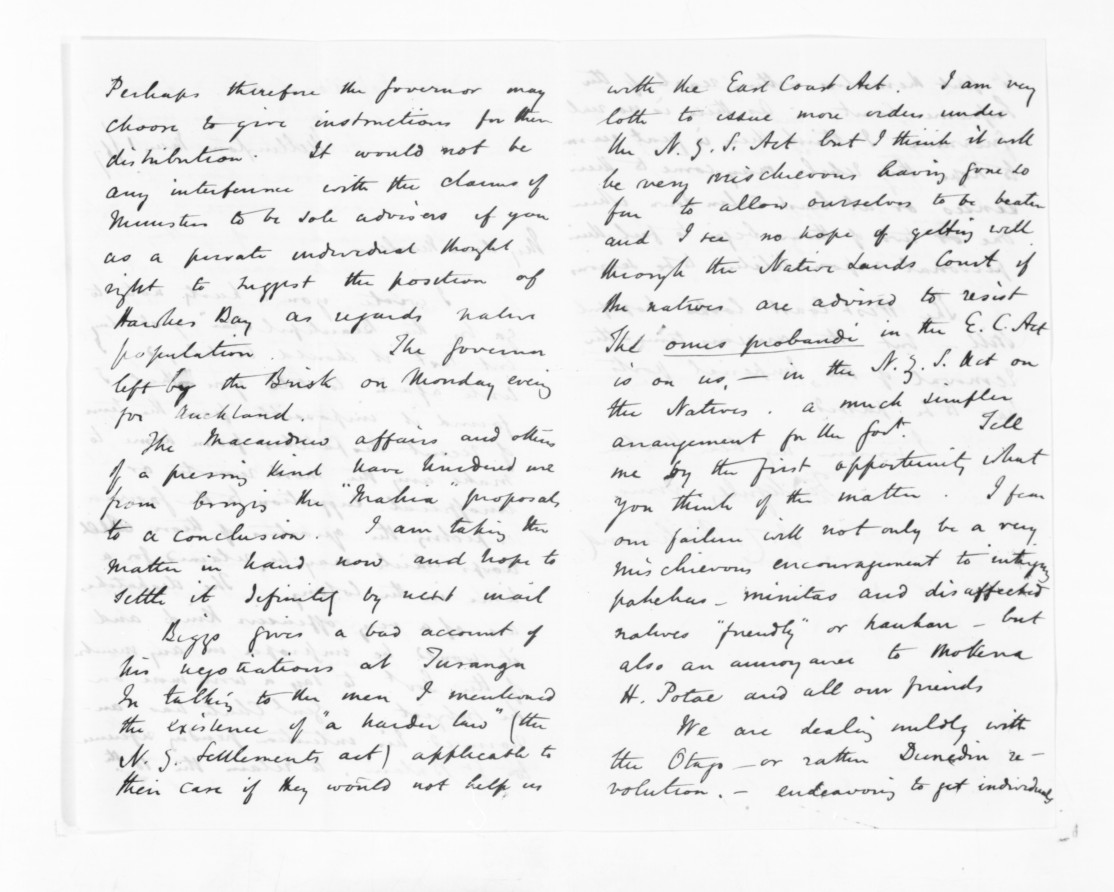 Perhaps therefore the Governor may
choose to give instructions for their
distribution. It would not be
any interference with the claims of
Ministers to be sole advisers if you
as a private individual thought
right to suggest the position of
Hawkes Bay as regards native
population. The Governor
left by the Brisk on Monday evening
for Auckland.
The Macandrew affairs and others
of a pressing kind have hindered me
from bringing the "Mahia" proposals
to a conclusion. I am taking the
matter in hand now and hope to
settle it definitely by next mail
Biggs gives a bad account of
his negotiations at Turanga
In talking to the men I mentioned
the existence of "a harder law" (the
N. Z. Settlements act) applicable to
their case if they would not help us
with the East Coast Act I am very
loth to issue more orders under
the N. Z. S. Act but I think it will
be very mischievous having gone so
far to allow ourselves to be beaten
and I see no hope of getting well
through the Native Lands Court if
the natives are advised to resist
The onus probandi in the E. C. Act
is on us, - in the N. Z. S. Act on
the Natives. a much simpler
arrangement for the Govt. Tell
me by the first opportunity what
you think of the matter. I fear
our failure will not only be a very
mischievous encouragement to intriguing
pakehas - minitas and disaffected
natives "friendly" or hauhau - but
also an annoyance to Mokena
H. Potae and all our friends
We are dealing mildly with
the Otago - or rather Dunedin re-
volution. - endeavoring to get individuals